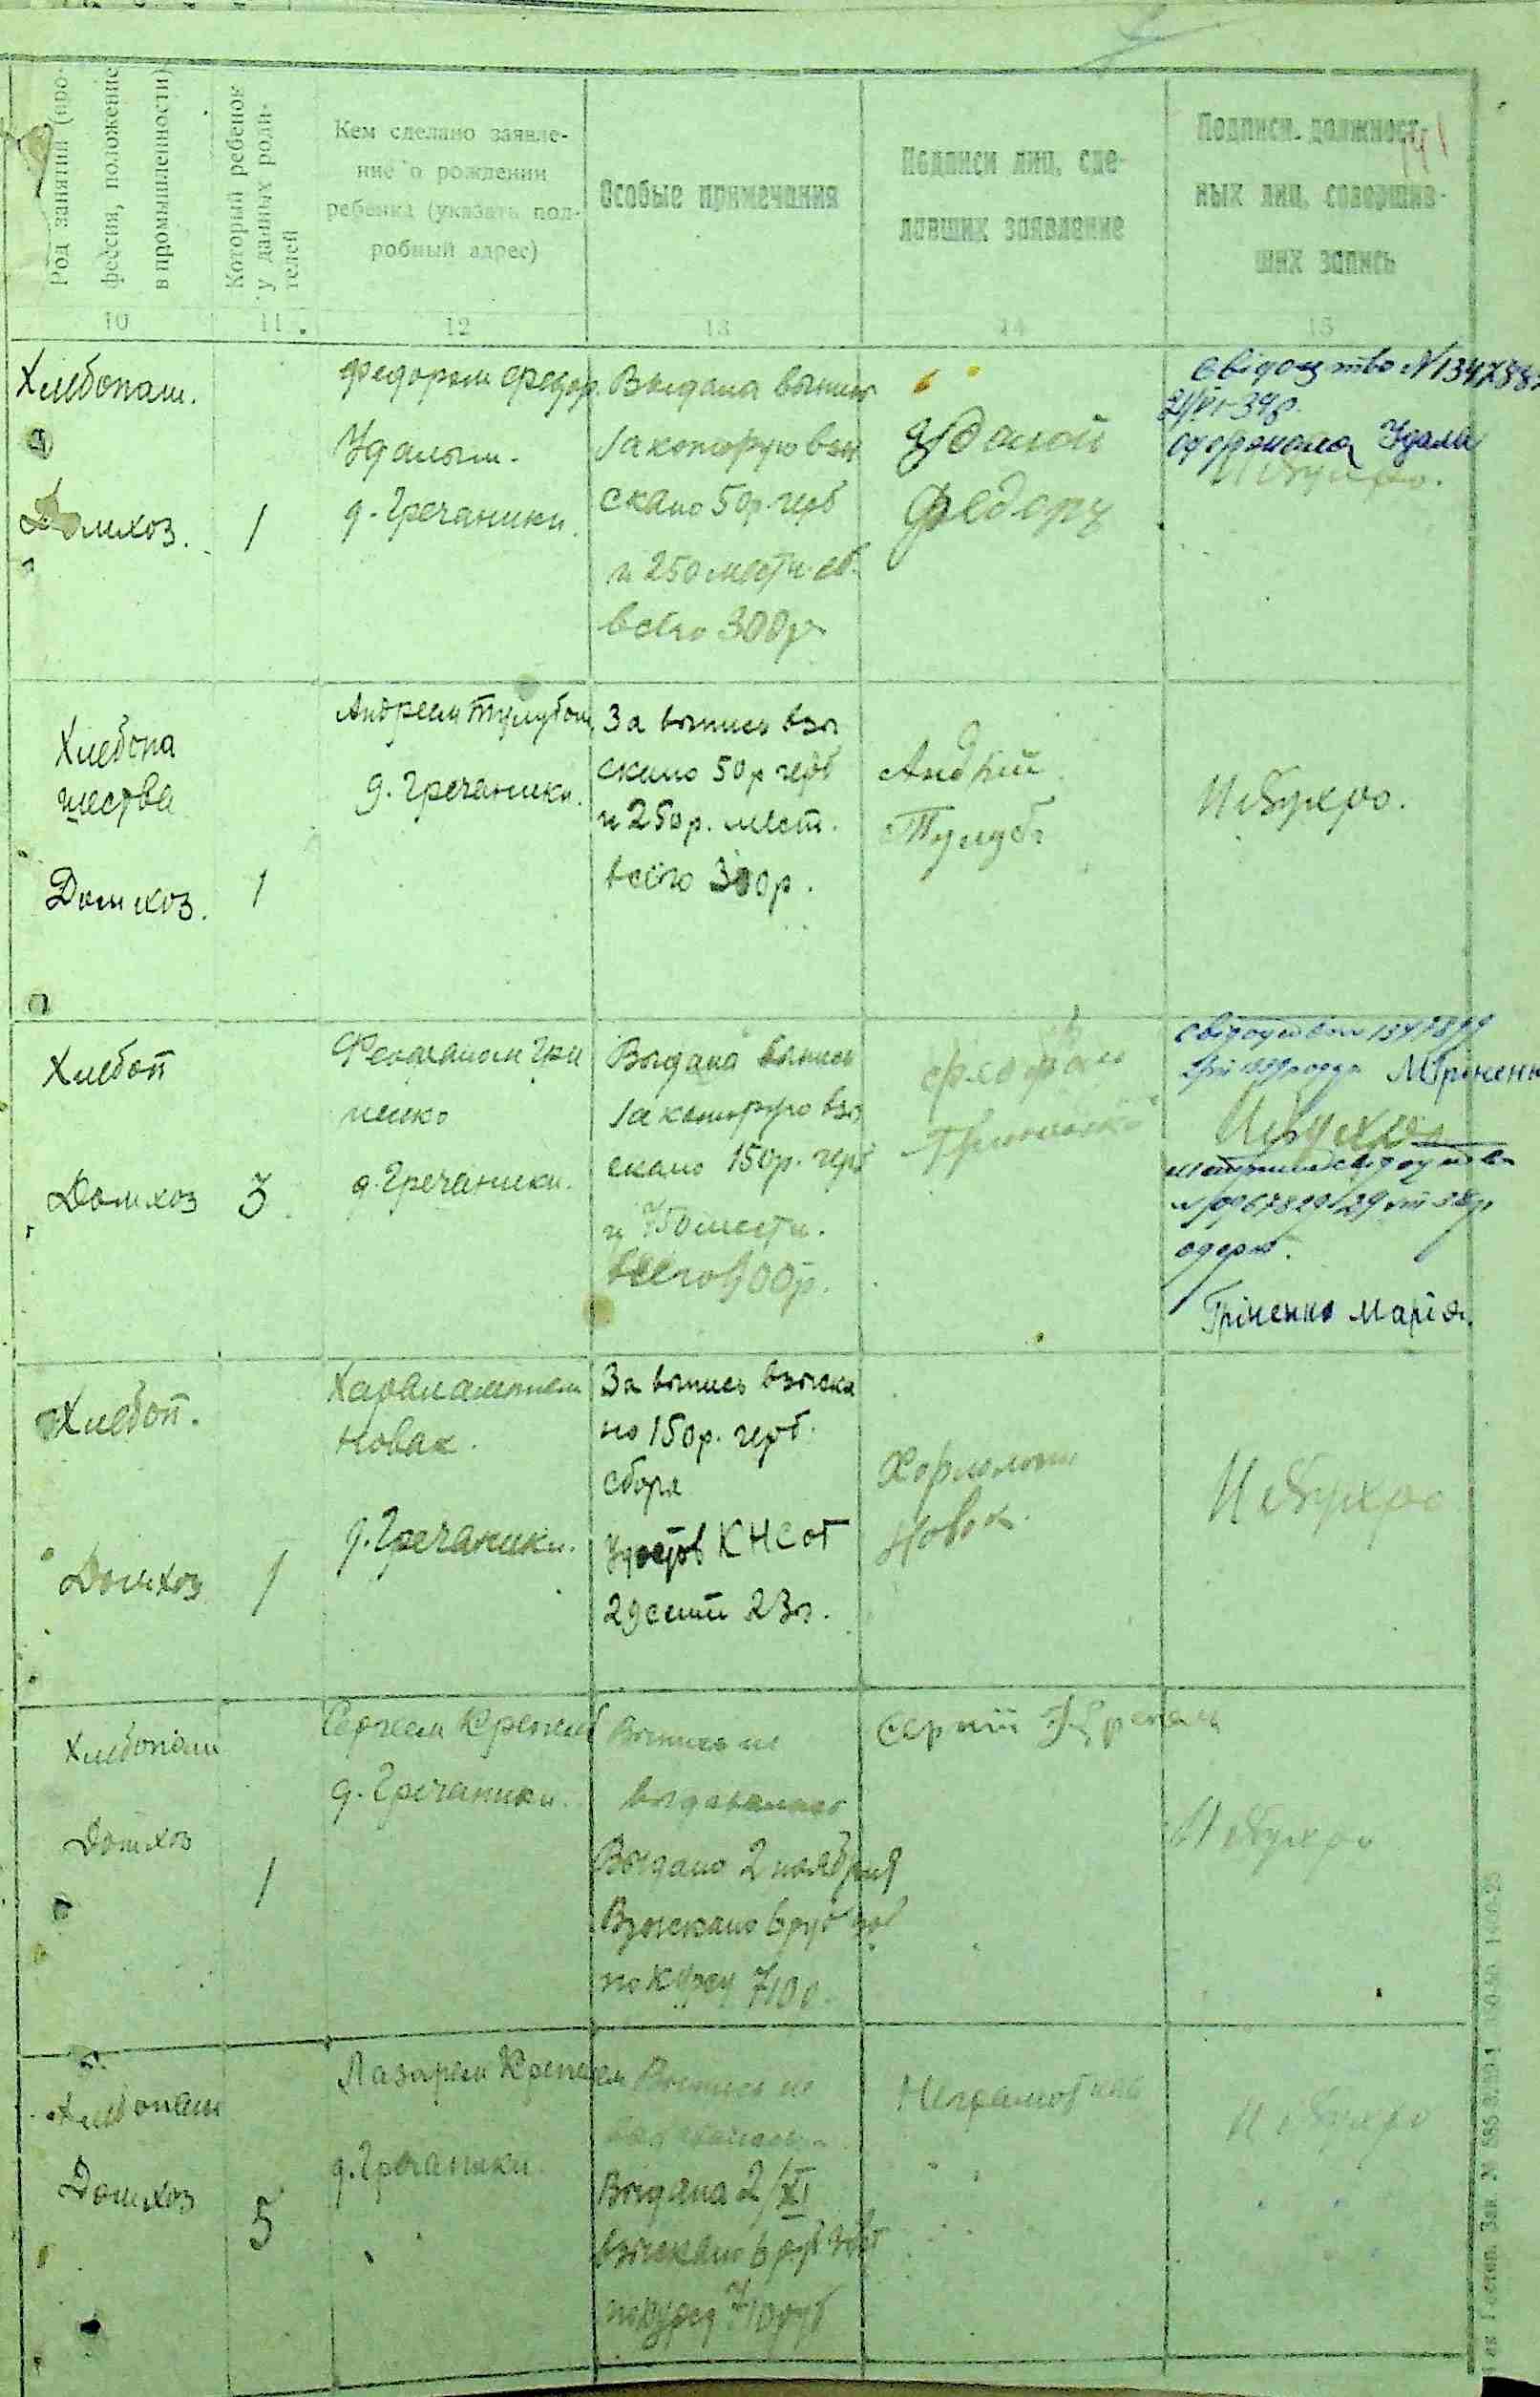 Род занятий (про-
фессия, положение
в промышленности)
Который ребенок
у данных роди-
телей
Кем сделано заявле-
ние о рождении
ребенка (указать под-
робный адрес)
Особые примечания
Подписи лиц, сде-
лавших заявление
Подписи должност-
ных лиц, совершив-
ших запись
10
11
12
13
14
15
Хлебопаш.
Домхоз.
1
Федором Федор.
Удалым.
д. Гречаники.
Выдана выпись
за которую взы
скано 50р. герб
и 250 местн. сб.
всего 300р
Удалой
Федору
Свідоцтво N134788
21/VI-34р.
одержала Удала
Хлебопа
шества
Домхоз.
1
Андреем Тулубом
д. Гречаники.
За выпись взы
скано 50р герб
и 250р. мест.
всего 300р.
Андрій
Тулуб
Хлебоп
Домхоз
3
Феофаном Гри
ненко
д. Гречаники.
Выдана выпись
за которую взы
скано 150р. герб
и 750 местн.
всего 900р.
Феофан
Гриненко
Мгріненко
одерж.
Гріненко Марія.
Хлебоп.
Домхоз
1
Харлампием
Новак.
д. Гречаники.
За выпись взыска
но 150р. герб.
сбора
Удостов КНС от
29 сент 23г.
Харлампий
Новак.
Хлебопаш
Домхоз
1
Сергеем Крепем
д. Гречаники.
Выпись не
выдавалась
Выдано 2 ноября
Взыскано 6 руб зол
по курсу 7100.
Сергій
Хлебопаш
Домхоз
5
Лазарем
д. Гречаники
Выпись не
Выдана 2/XI
взыскано 6 руб
по курсу 7100 руб
Неграмотная